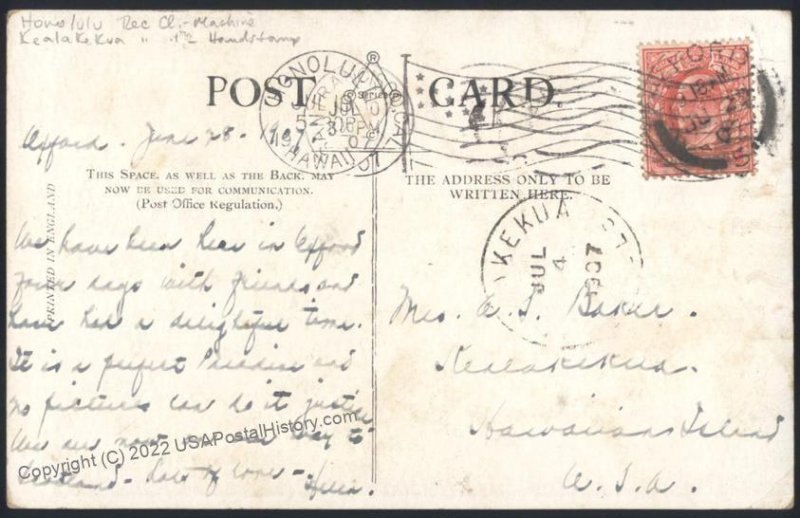 Honolulu Rec Cl.-Machine
Kealakekua " 1907 Handstamp
POST CARD.
Series
HONOLULU
HAWAII
1907
OXFORD
Oxford - June 28 - 1907
THIS SPACE, AS WELL AS THE BACK, MAY
NOW BE USED FOR COMMUNICATION.
(Post Office Regulation.)
THE ADDRESS ONLY TO BE
WRITTEN HERE.
PRINTED IN ENGLAND
KEKUA
JUL
4
1907
We have been here in Oxford
four days with friends and
have had a delightful time.
It is a perfect Paradise and
no pictures can do it justice
We are now on our way to
Scotland - Lots of love -
Helen.
Mrs. A. S. Baker.
Kealakekua.
Hawaiian Island
U.S.A.
Copyright (C) 2022 USAPostalHistory.com